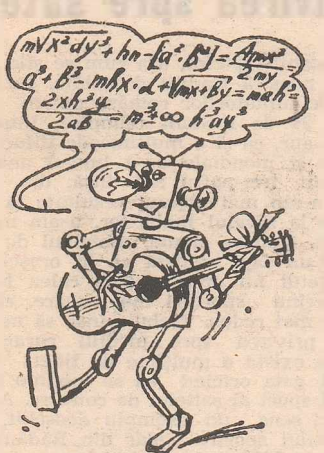 m√x²dy³ + hn - [a²·B²] = Amx³/2my =
a³+B³ - mhx·d + √mx+By = mah³ =
2xh³y/2ab = m³ + ∞ h³ay³